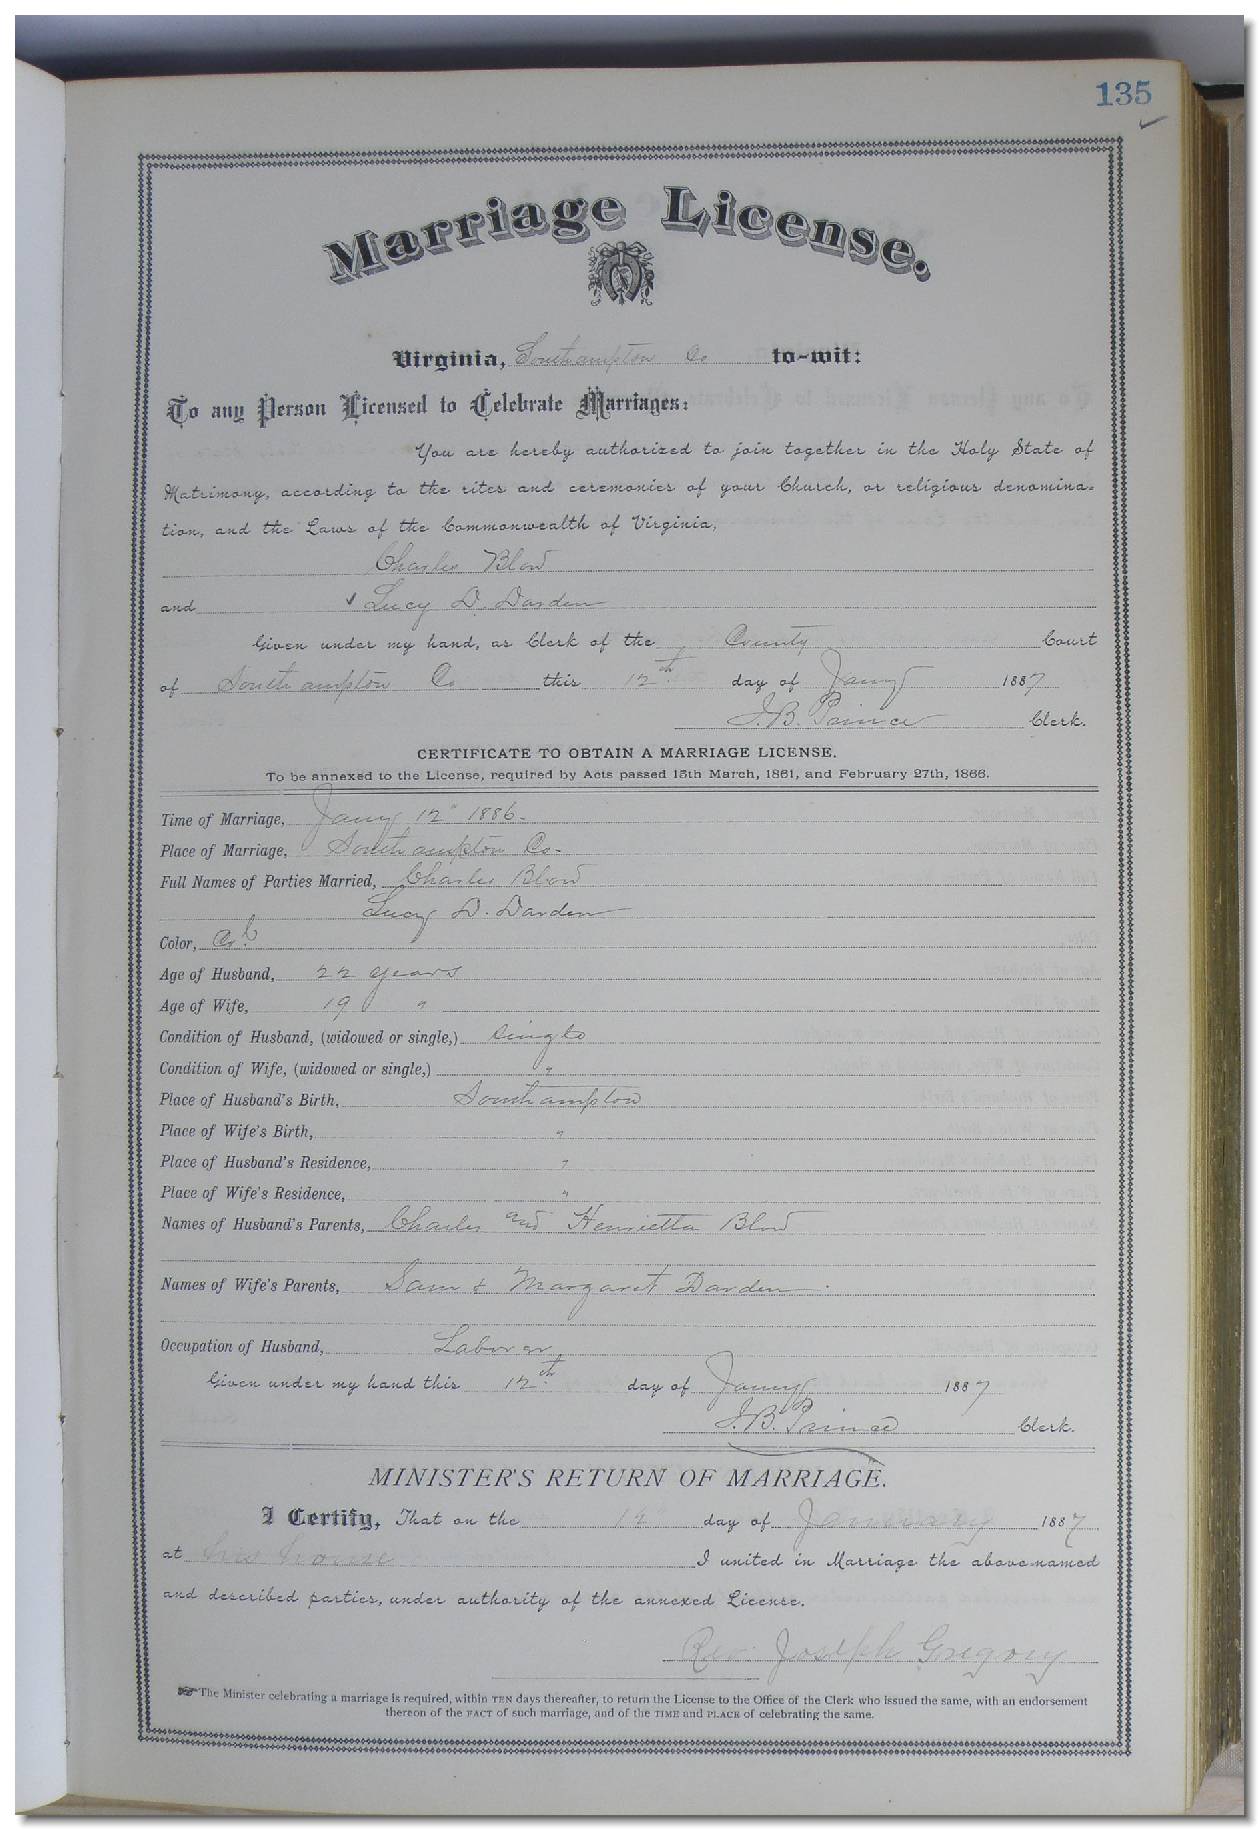 135
Marriage License.
Virginia, Southampton Co to-wit:
To any Person Licensed to Celebrate Marriages:
You are hereby authorized to join together in the Holy State of
Matrimony, according to the rites and ceremonies of your Church, or religious denomina-
tion, and the Laws of the Commonwealth of Virginia,
Charles Blow
and Lucy D. Darden
Given under my hand, as Clerk of the County Court
of Southampton Co this 12th day of Jany 1887
J. B. Prince Clerk.
CERTIFICATE TO OBTAIN A MARRIAGE LICENSE.
To be annexed to the License, required by Acts passed 15th March, 1861, and February 27th, 1866.
Time of Marriage, Jany 12" 1886.
Place of Marriage, Southampton Co.
Full Names of Parties Married, Charles Blow
Lucy D. Darden
Color, Cold
Age of Husband, 22 years
Age of Wife, 19 "
Condition of Husband, (widowed or single,) Single
Condition of Wife, (widowed or single,) "
Place of Husband's Birth, Southampton
Place of Wife's Birth, "
Place of Husband's Residence, "
Place of Wife's Residence, "
Names of Husband's Parents, Charles and Henrietta Blow
Names of Wife's Parents, Sam & Margaret Darden
Occupation of Husband, Laborer
Given under my hand this 12th day of Jany 1887
J. B. Prince Clerk.
MINISTER'S RETURN OF MARRIAGE.
I Certify, That on the 12 day of January 1887
at his house I united in Marriage the above-named
and described parties, under authority of the annexed License.
Rev. Joseph Gregory
The Minister celebrating a marriage is required, within TEN days thereafter, to return the License to the Office of the Clerk who issued the same, with an endorsement
thereon of the FACT of such marriage, and of the TIME and PLACE of celebrating the same.